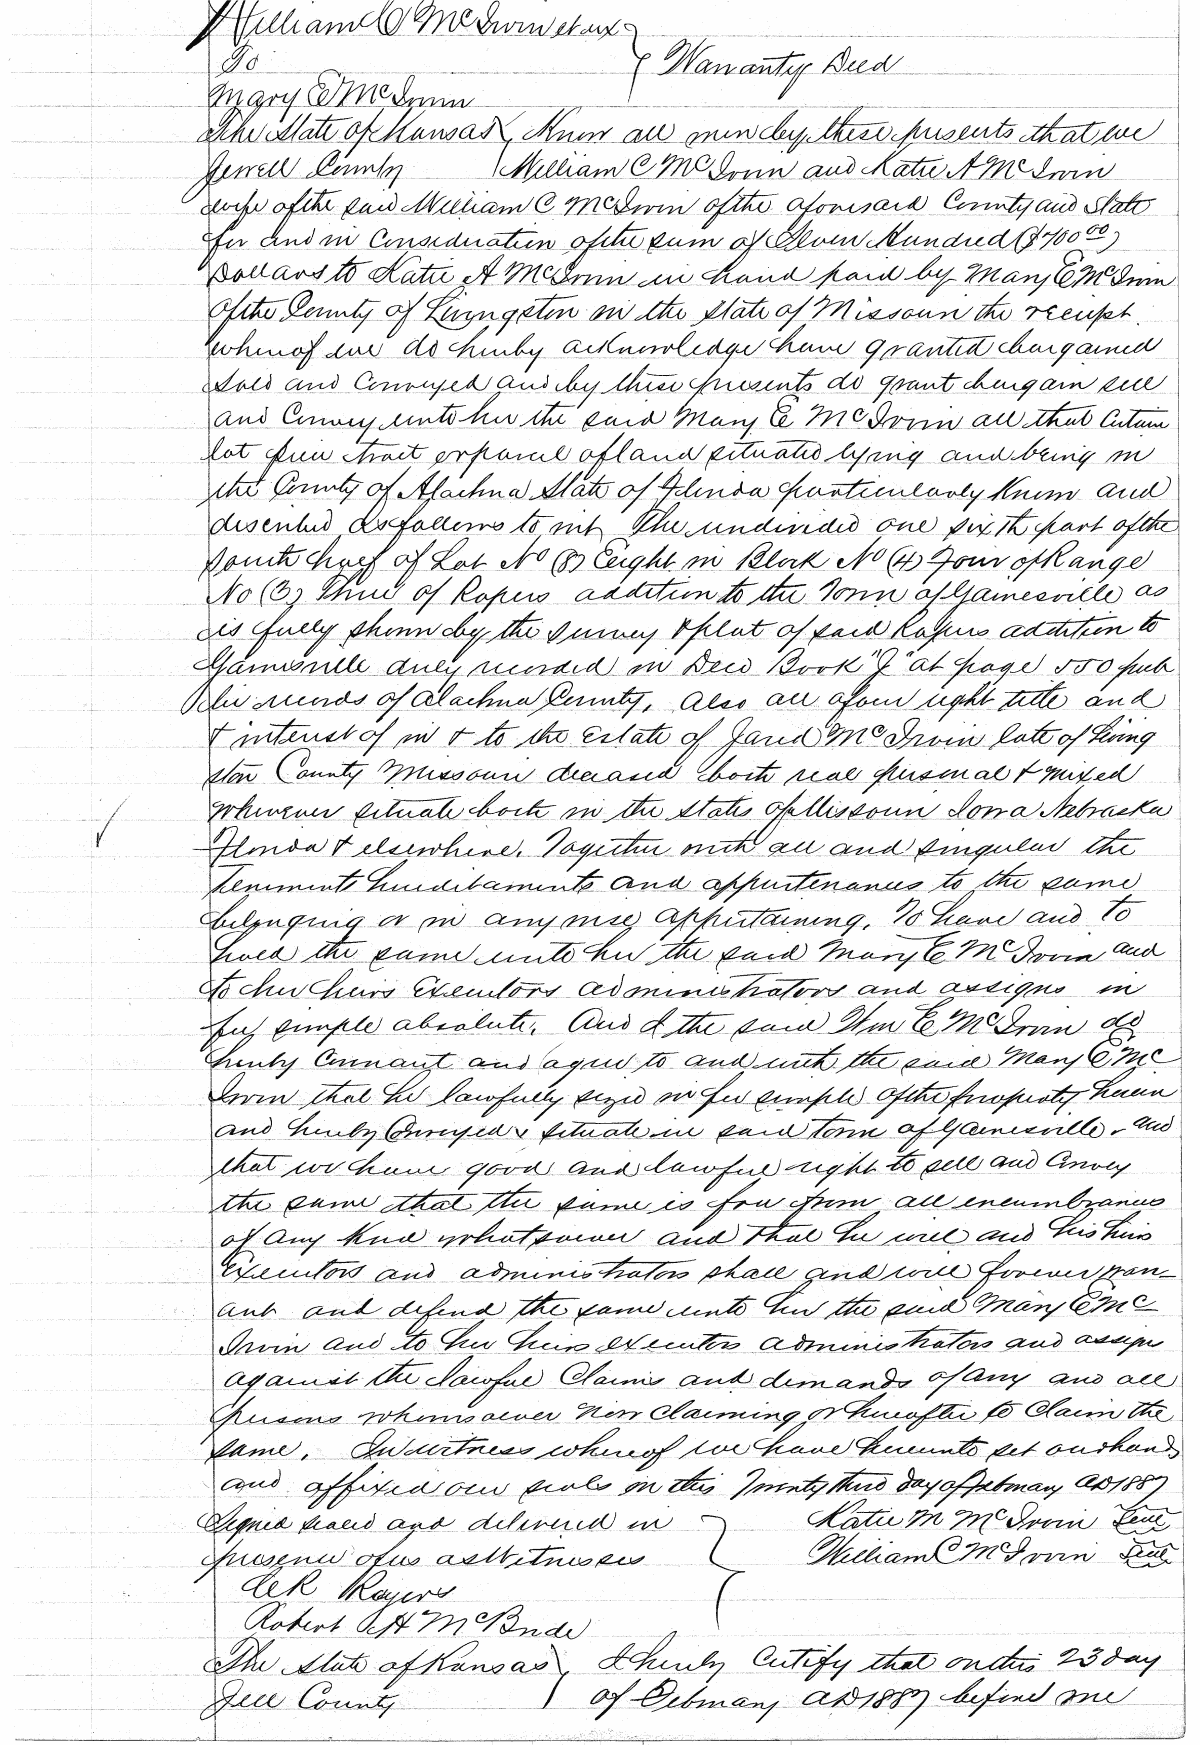 William C McIrvin et ux
To
Warranty Deed
Mary E McIrvin
The State of Kansas, Know all men by these presents that we
Jewell County William C McIrvin and Katie A McIrvin
wife of the said William C McIrvin of the aforesaid County and State
for and in Consideration of the sum of Seven Hundred ($700 00)
Dollars to Katie A McIrvin in hand paid by Mary E McIrvin
of the County of Livingston in the State of Missouri the receipt
whereof we do hereby acknowledge have granted bargained
sold and Conveyed and by these presents do grant bargain sell
and Convey unto her the said Mary E McIrvin all that Certain
lot piece tract or parcel of land situated lying and being in
the County of Alachua State of Florida particularly known and
described as follows to wit The undivided one sixth part of the
South half of Lot No (8) Eight in Block No (4) Four of Range
No (3) Three of Ropers addition to the Town of Gainesville as
is fully shown by the survey & plat of said Ropers addition to
Gainesville duly recorded in Deed Book "J" at page 550 pub
lic records of Alachua County, Also all of our right title and
& interest of in & to the Estate of Jared McIrvin late of Living
ston County Missouri deceased both real personal & mixed
wherever situate both in the States of Missouri Iowa Nebraska
Florida & elsewhere. Together with all and singular the
tenements hereditaments and appurtenances to the same
belonging or in any wise appertaining. To have and to
hold the same unto her the said Mary E McIrvin and
to her heirs Executors administrators and assigns in
fee simple absolute. And I the said Wm C McIrvin do
hereby Covenant and agree to and with the said Mary E Mc
Irvin that he lawfully sized in fee simple of the property herein
and hereby Conveyed & situate in said town of Gainesville, and
that we have good and lawful right to sell and Convey
the same that the same is free from all encumbrances
of any kind whatsoever and that he will and his heirs
Executors and administrators shall and will forever warr
ant and defend the same unto her the said Mary E Mc
Irvin and to her heirs executors administrators and assigns
against the lawful Claims and demands of any and all
persons whomsoever now claiming or hereafter to Claim the
same. In witness whereof we have hereunto set our hands
and affixed our seals on this Twenty third day of February AD 1887
Signed sealed and delivered in Katie M McIrvin Seal
presence of us as Witnesses William C McIrvin Seal
Rogers
Robert A H McBride
The State of Kansas, I hereby Certify that on this 23 day
Jell County of Febmary AD 1887 before me